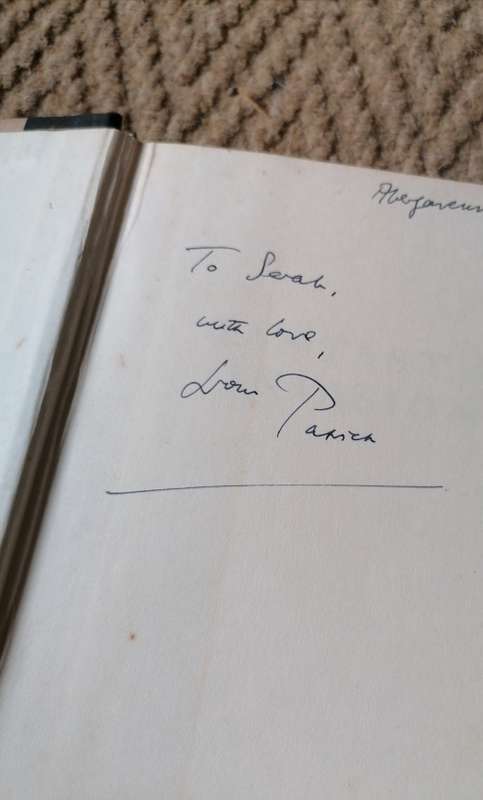 Abergavenn
To Sarah,
with love,
from Patrick